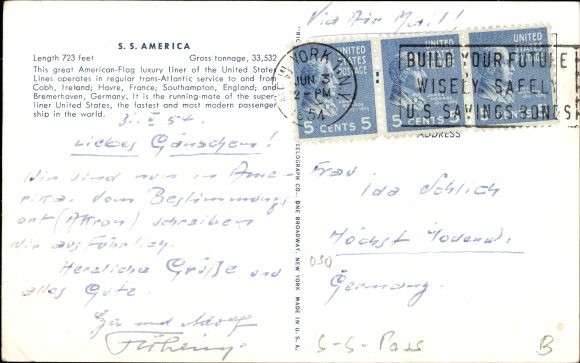 S. S. AMERICA
Length 723 feet Gross tonnage, 33,532
This great American-Flag luxury liner of the United States
Lines operates in regular trans-Atlantic service to and from
Cobh, Ireland; Havre, France; Southampton, England; and
Bremerhaven, Germany. It is the running-mate of the super-
liner United States, the fastest and most modern passenger
ship in the world.
54.
Liebes Gänschen!
Wir sind nun in Ame-
rika. Vom Bestimmungs
ort (Akron) schreiben
wir ausführlich.
Herzliche Grüße und
alles Gute.
und Adolf
Via Air Mail!
NEW YORK, N.Y.
JUN 3
2-PM
1954
BUILD YOUR FUTURE
WISELY, SAFELY
U.S. SAVINGS BONDS
UNITED STATES POSTAGE
5 CENTS 5
5 CENTS 5
ADDRESS
Frau
Ida Schlich
Höchst
Germany.
050
S-S-Pass
B
CO., ONE BROADWAY, NEW YORK. MADE IN U.S.A.